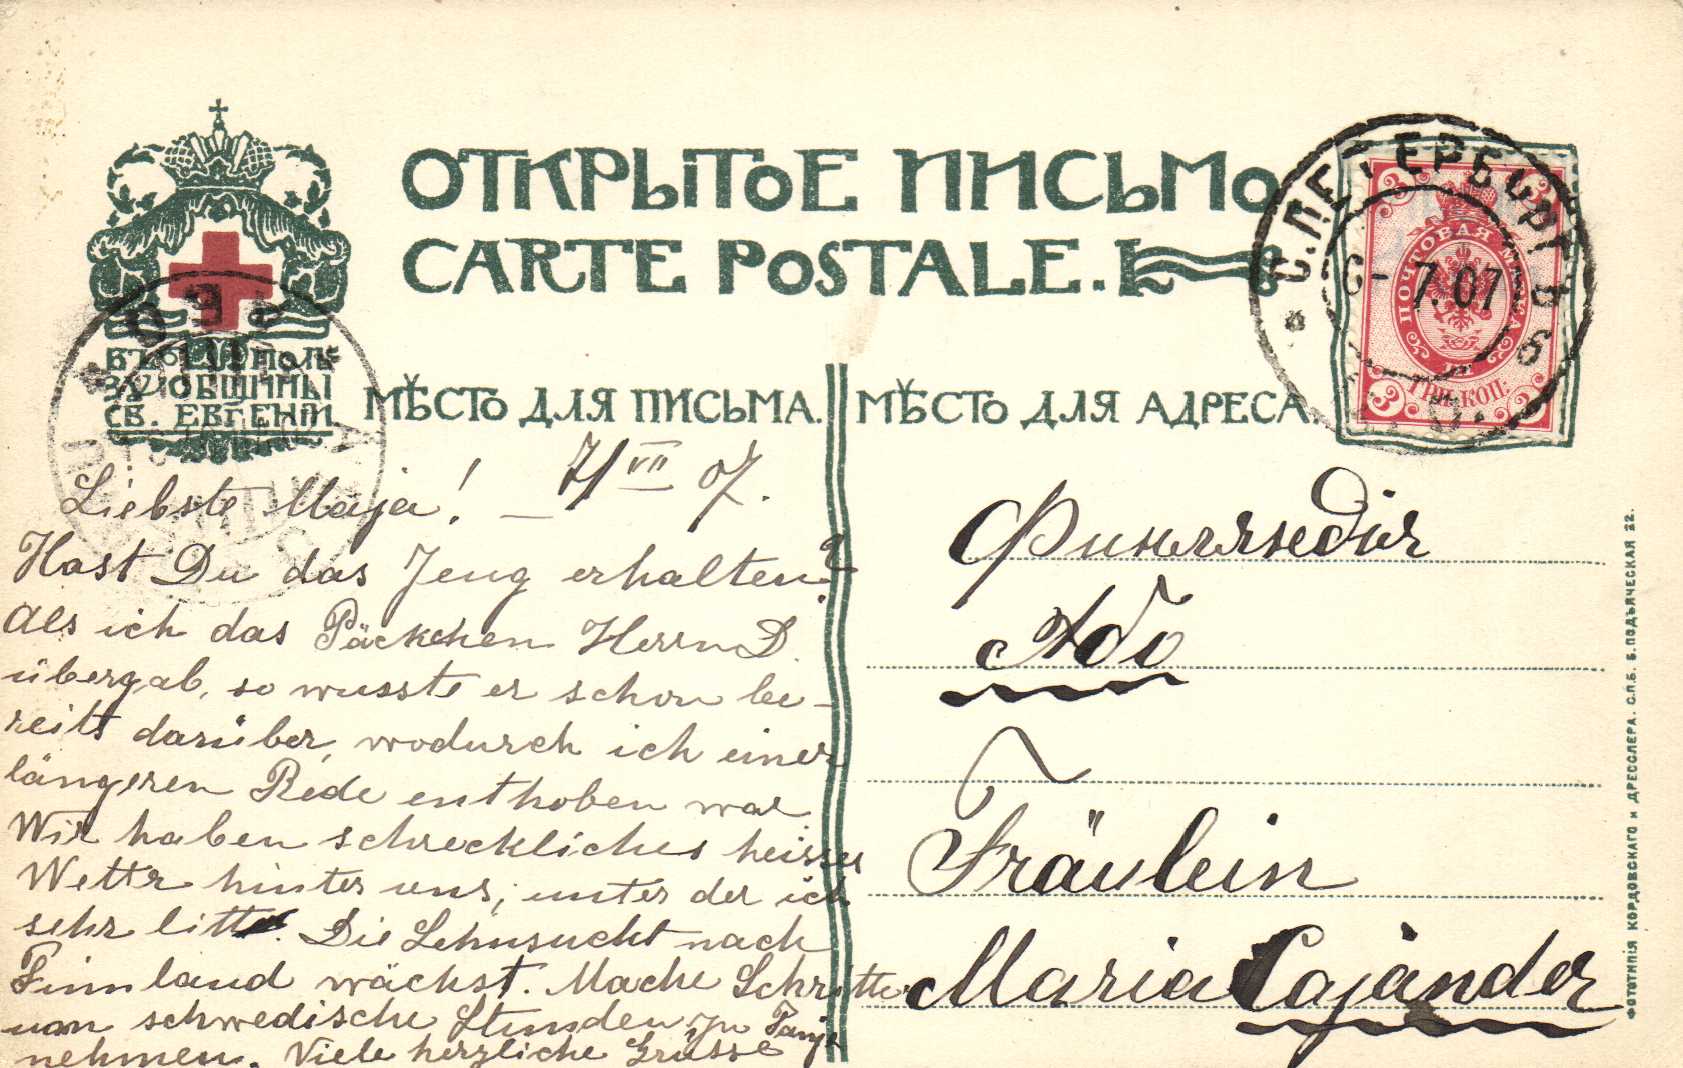 ОТКРЫТОЕ ПИСЬМО
CARTE POSTALE.
ВЪ ПОЛЬ
ЗУ ОБЩИНЫ
СВ. ЕВГЕНІИ
МѢСТО ДЛЯ ПИСЬМА.
МѢСТО ДЛЯ АДРЕСА.
С.ПЕТЕРБУРГЪ
7.07
ПОЧТОВАЯ МАРКА
3
3
ТРИ КОП:
Liebste Maja! – 7/VII 07.
Hast Du das Zeug erhalten?
Als ich das Päckchen Herrn D.
übergab, so wusste er schon be-
reits darüber, wodurch ich einer
längeren Rede enthoben war.
Wir haben schreckliches heisses
Wetter hinter uns, unter der ich
sehr litt. Die Sehnsucht nach
Finnland wächst. Mache Schritte
um schwedische Stunden zu
nehmen. Viele herzliche Grüsse
Tanja
Финляндія
Або
Fräulein
Maria Cajander
ФОТОТИПІЯ КОРДОВСКАГО и ДРЕССЛЕРА. С.П.Б. Б. ПОДЬЯЧЕСКАЯ 22.